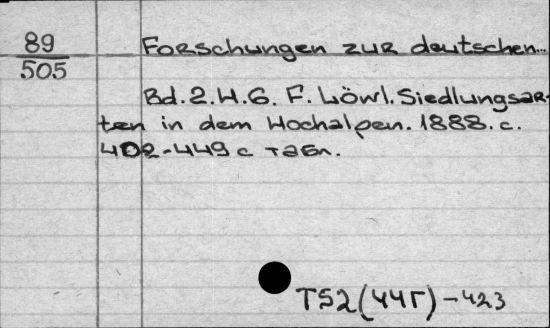 89
505
Forschungen zur deutschen...
Bd. 2. H. 6. F. Löwl. Siedlungsar-
ten in dem Hochalpen. 1888. с.
402-449 с табл.
T52(44Г)-423